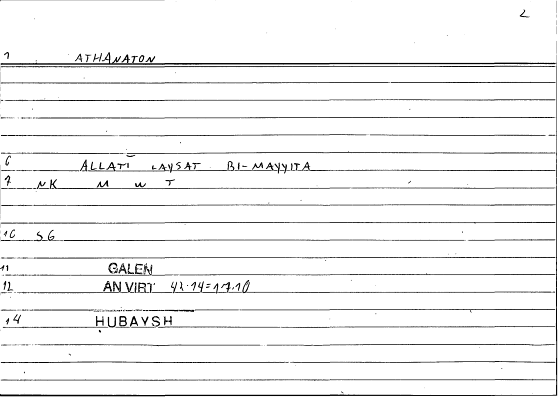 L
1 ATHANATON
6 ALLATĪ LAYSAT BI-MAYYITA
7 NK M W T
10 SG
11 GALEN
12 AN VIRT 42.14=17.10
14 HUBAYSH